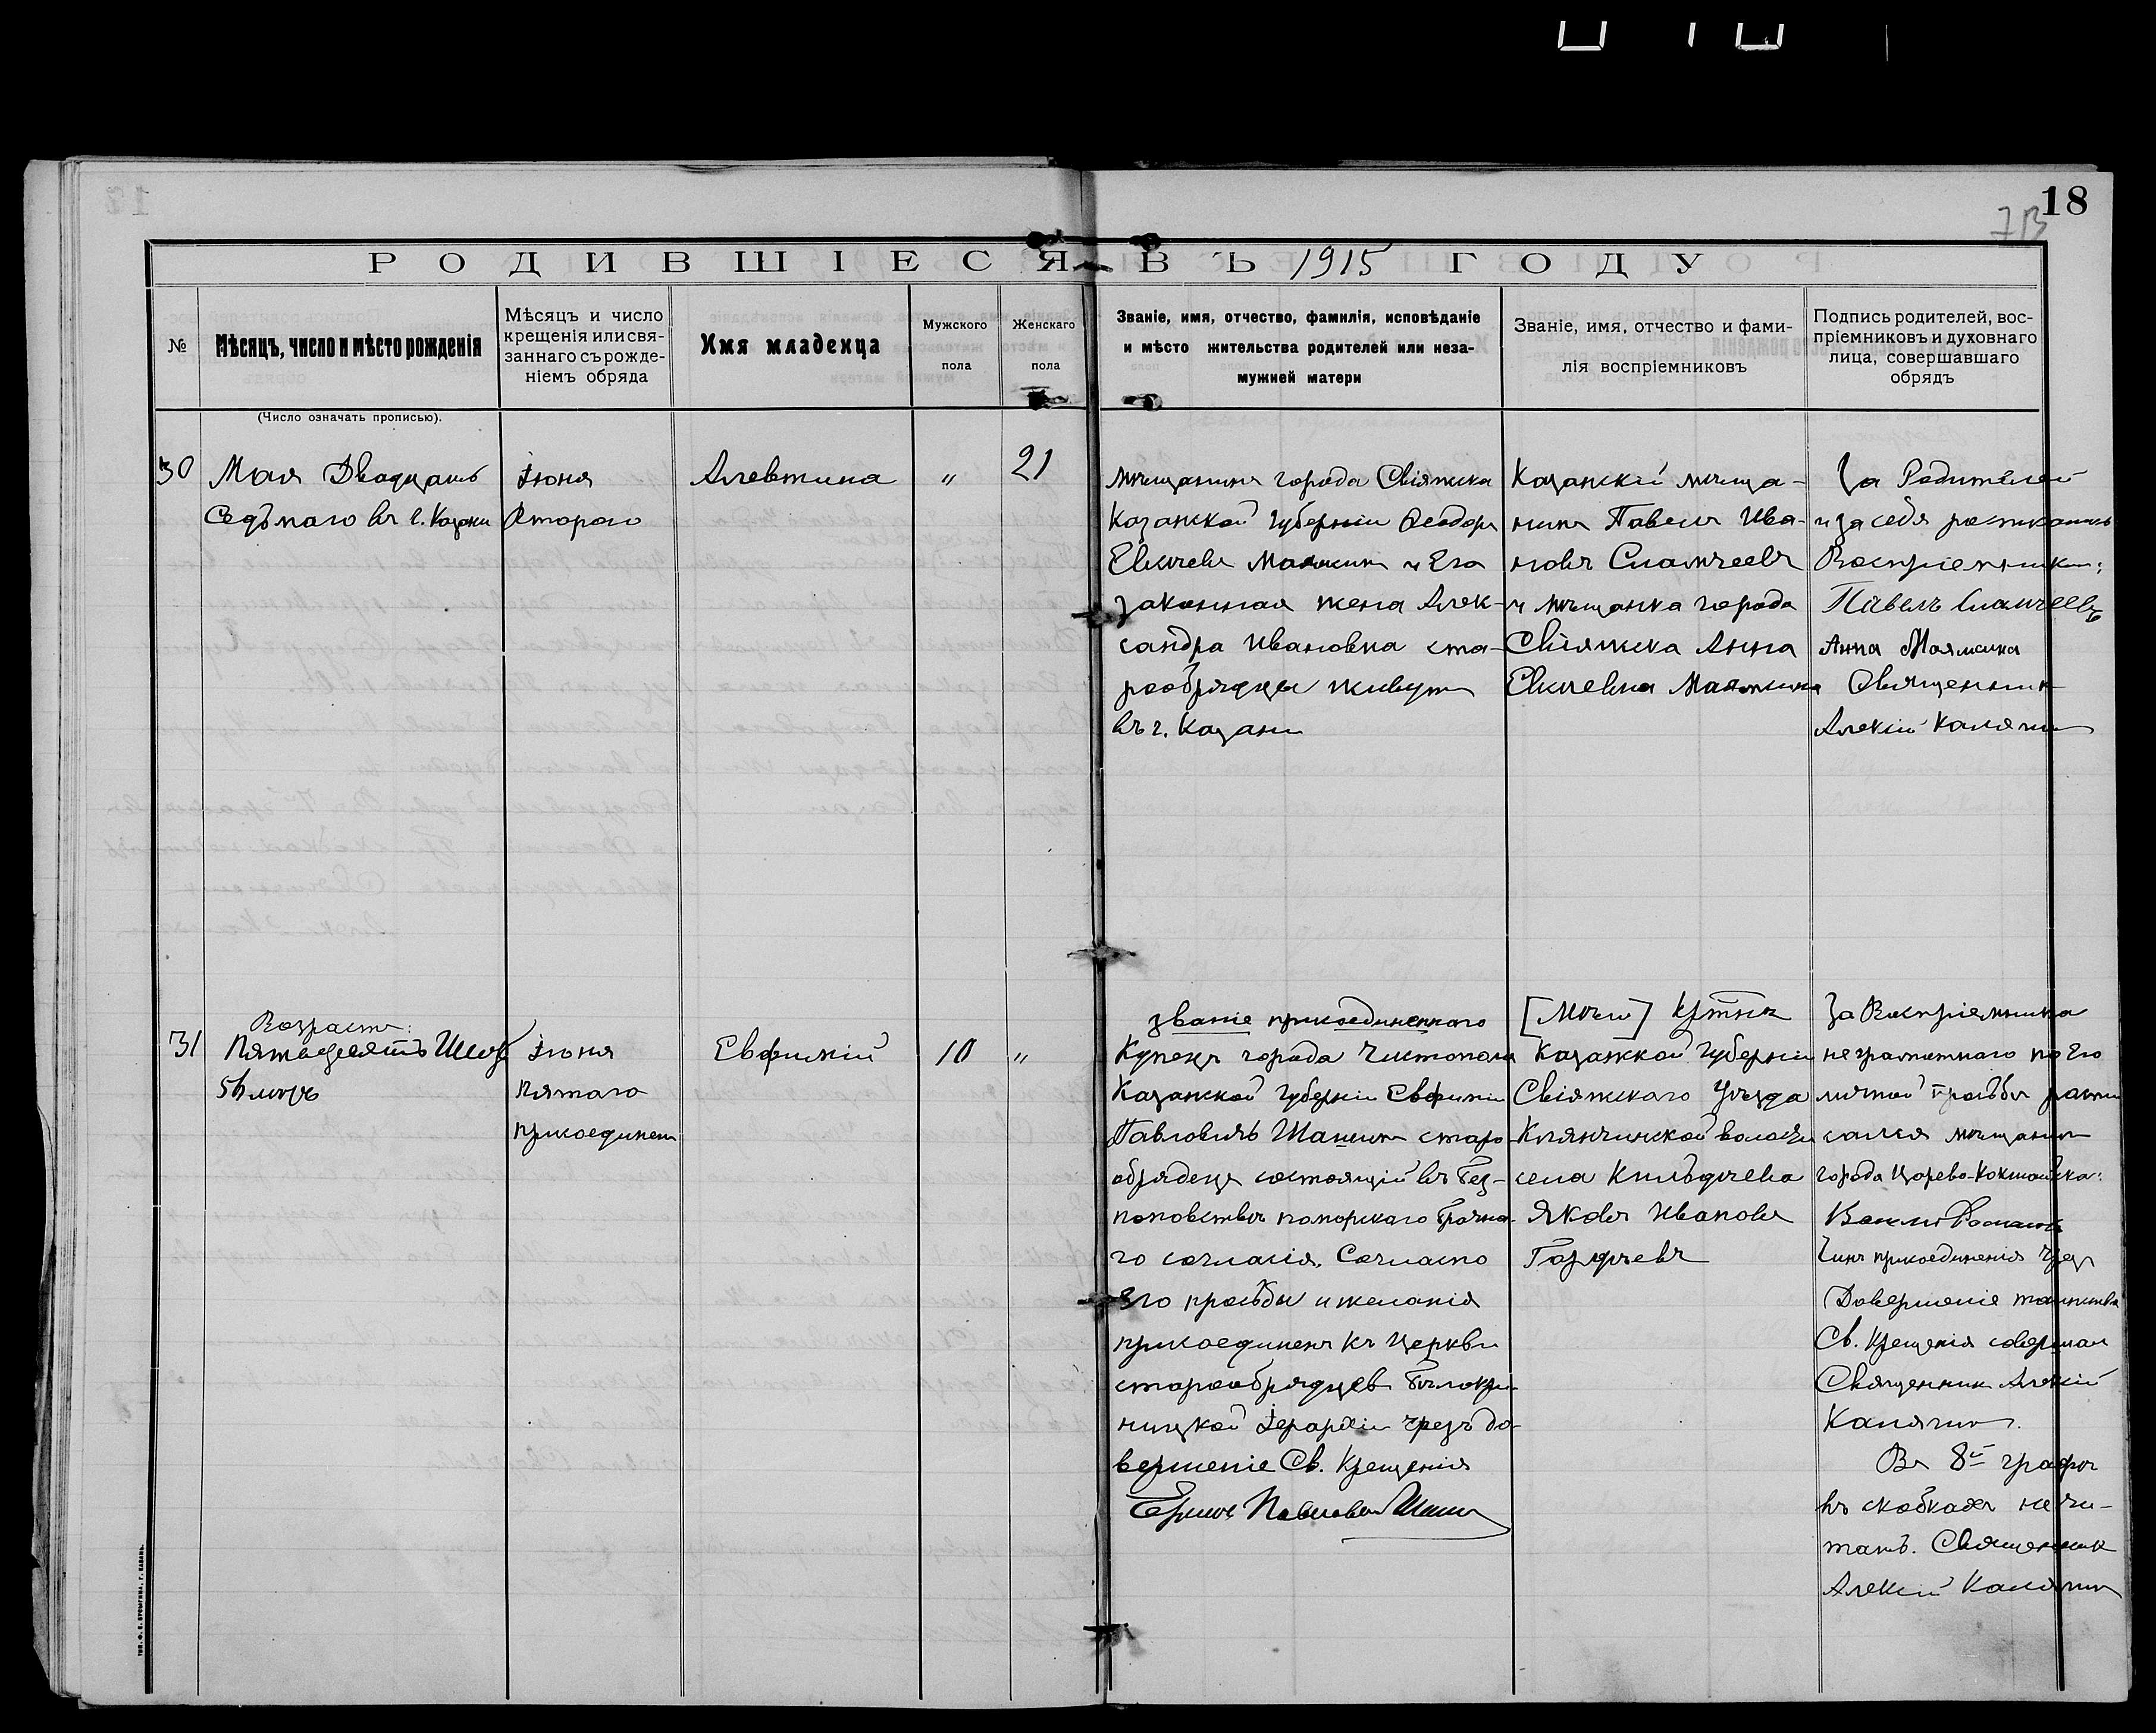 18
РОДИВШІЕСЯ ВЪ 1915 ГОДУ
№
Мѣсяцъ, число и мѣсто рожденія
Мѣсяцъ и число
крещенія или свя-
заннаго съ рожде-
ніемъ обряда
Имя младенца
Мужского
пола
Женскаго
пола
Званіе, имя, отчество, фамилія, исповѣданіе
и мѣсто жительства родителей или неза-
мужней матери
Званіе, имя, отчество и фами-
лія воспріемниковъ
Подпись родителей, вос-
пріемниковъ и духовнаго
лица, совершавшаго
обрядъ
(Число означать прописью).
30
Мая Двадцать
Седьмаго въ г. Казани
Іюня
Второго
Алевтина
"
21
мѣщанинъ города Свіяжска
Казанской губерніи Ѳеодоръ
законная жена Алек-
сандра Ивановна ста-
рообрядцы живутъ
въ г. Казани
Казанскій мѣща-
нинъ Павелъ Ива-
новъ
и мѣщанка города
Свіяжска Анна
За Родителей
и за себя
Воспріемники:
Павелъ
Анна Маямсина
Священникъ
Алексій Калягин
31
Возрастъ:
Пятьдесятъ Шесть
56 лѣтъ
Іюня
пятаго
присоединенъ
Евфимій
10
"
званіе присоединеннаго
Купецъ города Чистополя
Казанской губерніи Евфимій
Павловичъ Шашинъ старо-
обрядецъ состоящій въ Без-
поповствѣ поморскаго брачна-
го согласія. Согласно
Его просьбы и желанія
присоединенъ къ Церкви
старообрядцевъ Бѣлокри-
ницкой Іерархіи чрезъ до-
вершеніе Св. Крещенія
[Мѣщ] Крт̅нъ
Казанской губерніи
Свіяжскаго Уѣзда
Клянчинской волости
села Кильдѣева
Яковъ Ивановъ
За Воспріемника
неграмотнаго по Его
личной просьбѣ распи
сался мѣщанинъ
города Царево-Кокшайска:
Чинъ присоединенія чрез
Довершеніе таинства
Св. Крещенія совершал
Священник Алексій
Калягин.
Въ 8й графѣ
въ скобкахъ не чи-
тать. Священник
Алексій Калягин